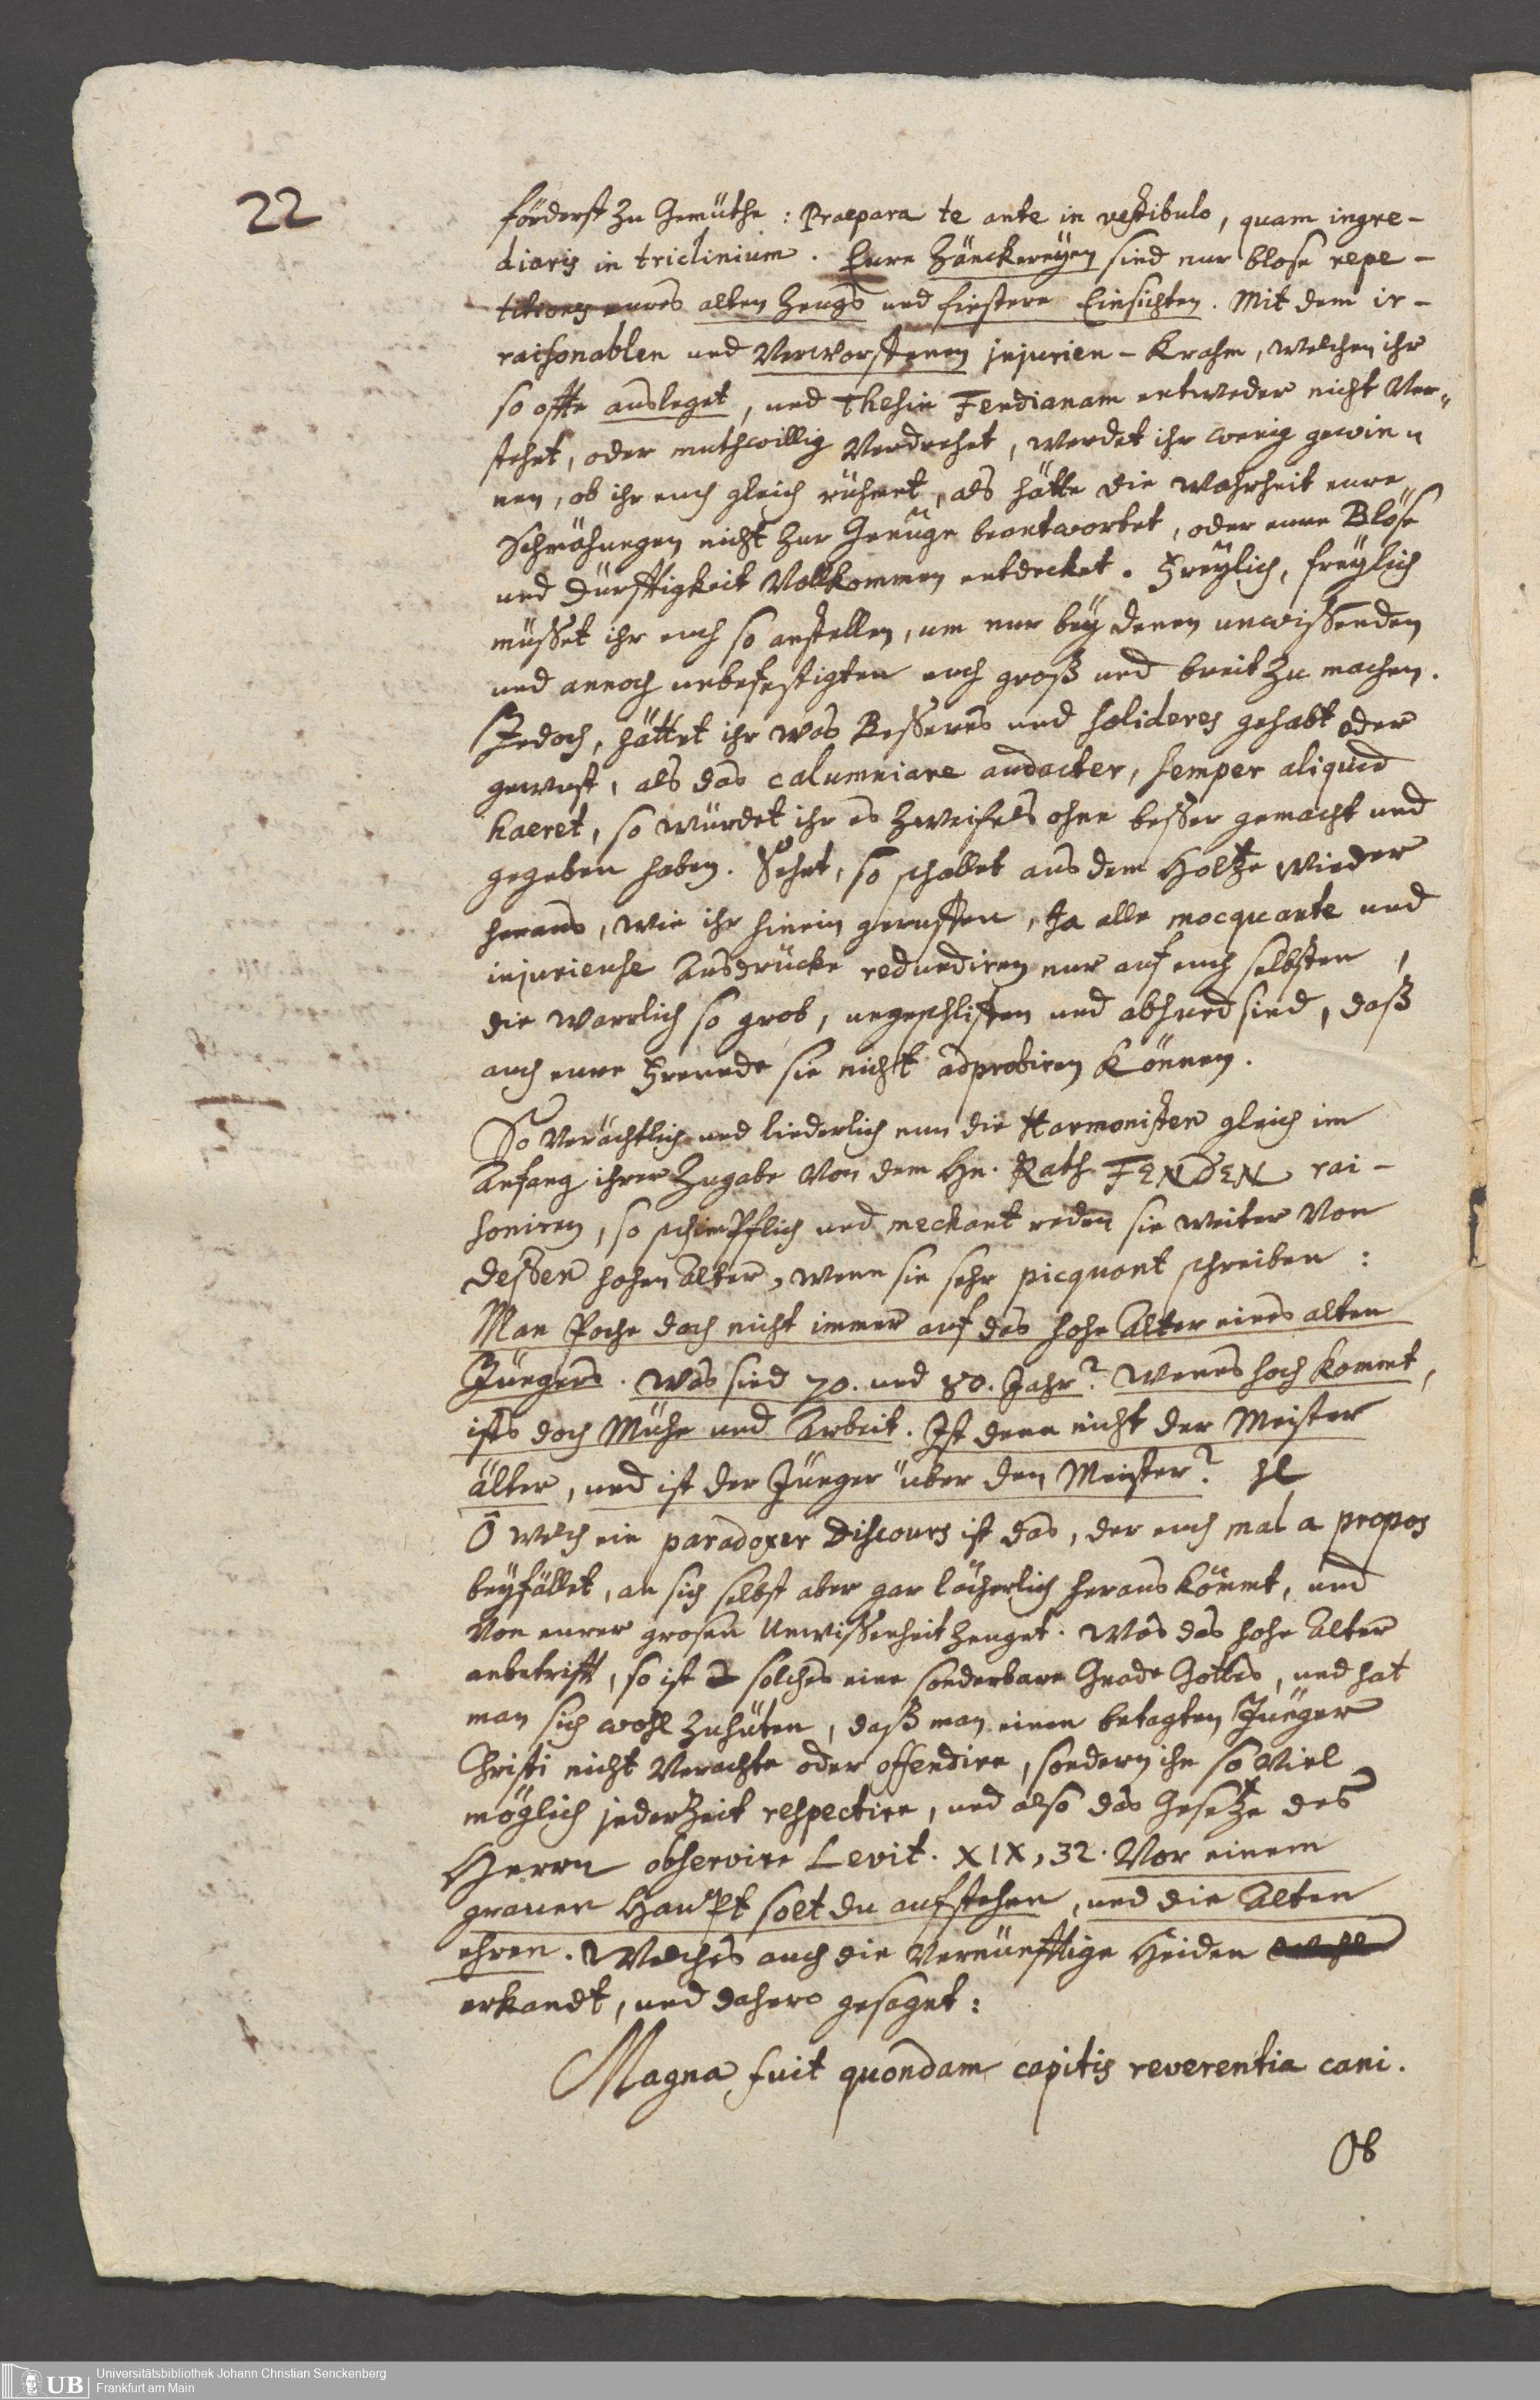 22
förderst zu Gemüthe: Praepara te ante in vestibulo, quam ingre-
diaris in triclinium. Eure Zänckereyen sind nur blose repe-
titiones eures alten Zeugs und finstere Einsichten. Mit dem ir-
raisonablen und Verworffenen injurien-Krahm, welchen ihr
so offt ausleget, und Thesin Fendianam entweder nicht Ver-
stehet, oder muthwillig Verdrehet, werdet ihr wenig gewin-
nen, ob ihr euch gleich rühmet, als hätte die Wahrheit eure
Schmähungen nicht zur Genüge beantwortet, oder eure Blöse
und Dürfftigkeit Vollkommen entdecket. Freylich, freylich
müsset ihr euch so anstellen, um nur bey denen unwissenden
und annoch unbefestigten euch groß und breit zu machen.
Jedoch, hättet ihr was Besseres und solideres gehabt oder
gewust, als das calumniare audacter, semper aliquid
haeret, so würdet ihr es Zweifels ohne besser gemacht und
gegeben haben. Sehet, so schallet aus dem Holtze wieder
heraus, wie ihr hinein geruffen, Ja alle mocquante und
injurieuse Ausdrücke redundiren nur auf euch selbsten,
die warrlich so grob, ungeschliffen und absurd sind, daß
auch eure Freunde sie nicht adprobiren können.
So Verächtlich und liederlich nun die Harmonisten gleich im
Anfang ihrer Zugabe Von dem Hn. Rath FENDEN rai-
soniren, so schimpfflich und mechant reden sie weiter Von
dessen hohen Alter, wenn sie sehr picquant schreiben:
Man Poche doch nicht immer auf das hohe Alter eines alten
Jüngers. Was sind 70. und 80. Jahr? Wenns hoch kommt,
ists doch Mühe und Arbeit. Ist denn nicht der Meister
älter, und ist der Jünger über den Meister?
O welch ein paradoxer Discours ist das, der euch mal a propos
beyfället, an sich selbst aber gar lächerlich heraus kommt, und
Von eurer grosen Unwissenheit zeuget. Was das hohe Alter
anbetrifft, so ist solches eine sonderbare Gnade Gottes, und hat
man sich wohl zuhüten, daß man einen betagten Jünger
Christi nicht Verachte oder offendire, sondern ihn so Viel
möglich jederzeit respectire, und also das Gesetze des
Herrn observire Levit. XIX, 32. Vor einem
grauen Haupt solt du aufstehen, und die Alten
ehren. Welches auch die Vernünfftige Heiden
erkandt, und dahero gesaget:
Magna fuit quondam capitis reverentia cani.
Ob
UB Universitätsbibliothek Johann Christian Senckenberg
Frankfurt am Main